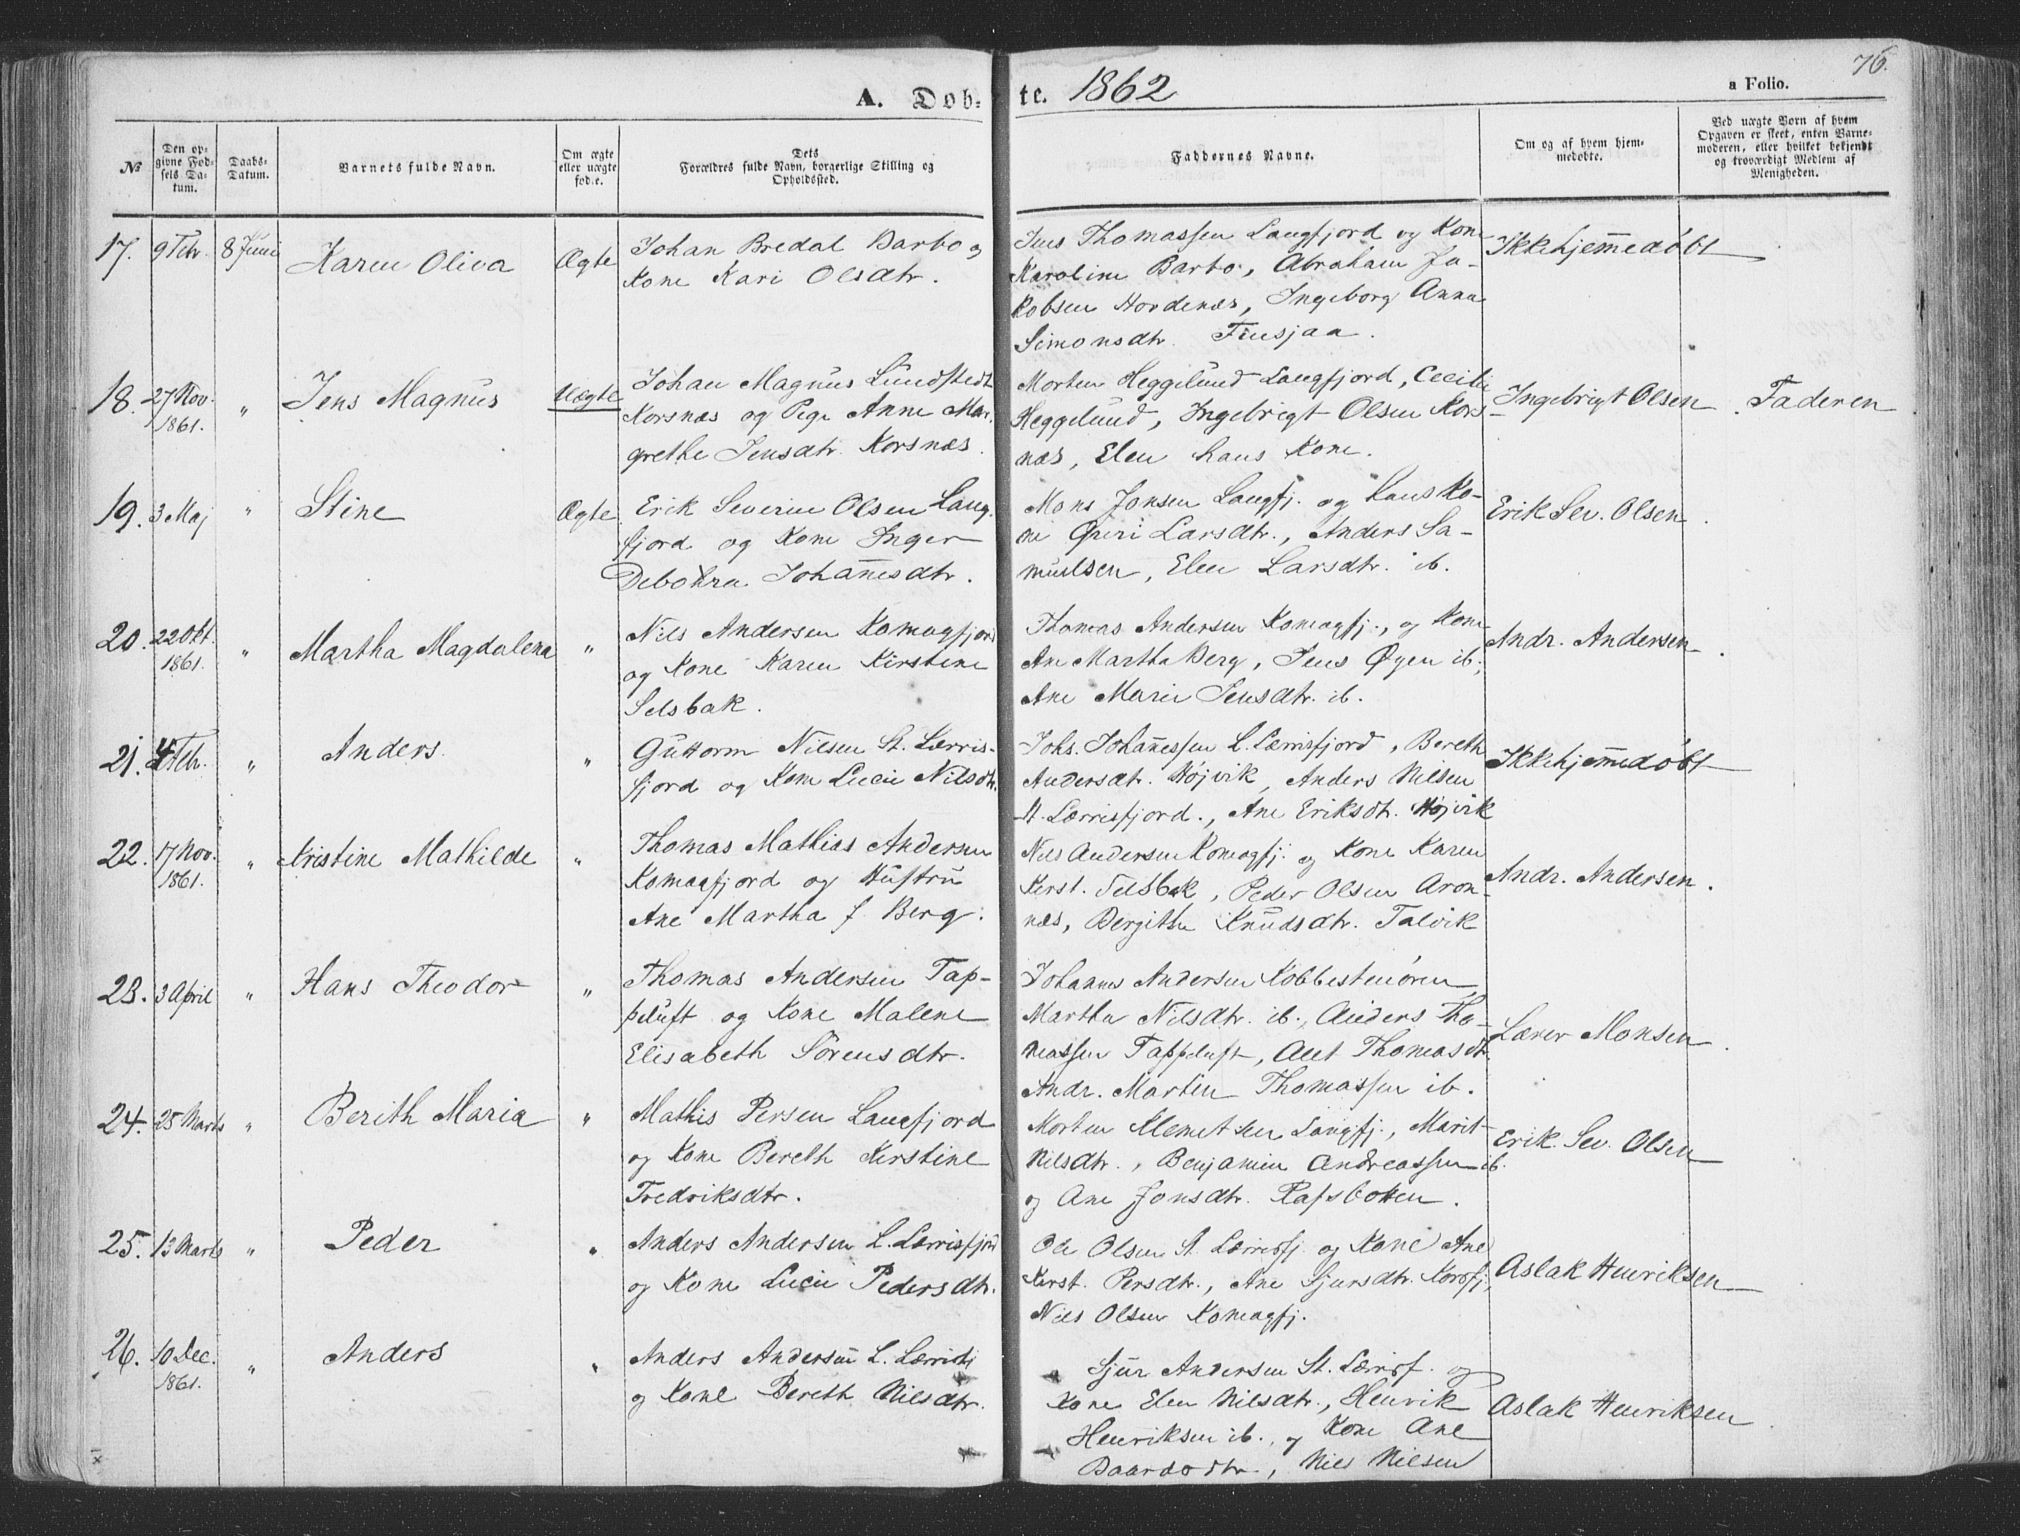 76.
A. Døb-te. 1862 a Folio.
№ | Den opgivne Fødsels Datum. | Daabs-Datum. | Barnets fulde Navn. | Om ægte eller uægte fød.e. | Dets Forældres fulde Navn, borgerlige Stilling og Opholdssted. | Faddernes Navne. | Om og af hvem hjemmedøbte. | Ved uægte Børn af hvem Opgaven er skeet, enten Barnemoderen, eller hvilket bekjendt og troværdigt Medlem af Menigheden.
17. 9 Febr. 8 Juni Karen Oliva Ægte
Johan Bredal Barbo og
Kone Kari Olsdtr.
Jens Thomassen Langfjord og Kone
Karoline Barbo, Abraham Ja-
kobsen Nordenæs, Ingeborg Anna
Simonsdtr.
Ikkehjemmedøbt
18. 27 Nov. 1861. " Jens Magnus Uægte
Johan Magnus Lundstedt
Korsnæs og Pige Anne Mar-
grethe Jensdtr. Korsnæs.
Morten Heggelund Langfjord, Cecilie
Heggelund, Ingebrigt Olsen Kors-
næs, Elen hans Kone.
Ingebrigt Olsen. Faderen
19. 3 Maj " Stine Ægte.
Erik Severin Olsen Lang-
fjord og Kone Inger
Debohra Johannesdtr.
Mons Jonsen Langfj. og hans Ko-
ne Larsdtr., Anders Sa-
muelsen, Elen Larsdtr. ib.
Erik Sev. Olsen.
20. 22 Okt. 1861. " Martha Magdalena "
Nils Andersen Komagfjord
og Kone Karen Kirstine
Selsbak.
Thomas Andersen Komagfj., og Kone
Ane Martha Berg, Jens Øyen ib.,
Ane Marie Jensdtr. ib.
Andr. Andersen.
21. 4 Febr. " Anders. "
Guttorm Nilsen St. Lerris-
fjord og Kone Lucie Nilsdtr.
Johs. Johannessen L. Lerrisfjord, Bereth
Andersdtr. Højvik, Anders Nilsen
St. Lerrisfjord., Ane Eriksdtr. Højvik
Ikkehjemmedøbt
22. 17 Nov. 1861. " Kristine Mathilde "
Thomas Mathias Andersen
Komagfjord og Hustru
Ane Martha f. Berg.
Nils Andersen Komagfj. og Kone Karen
Kirst. Selsbak, Peder Olsen Aron-
næs, Bergithe Knudsdtr. Talvik
Andr. Andersen.
23. 3 April " Hans Theodor "
Thomas Andersen Tap-
peluft og Kone Malene
Elisabeth Sørensdtr.
Johannes Andersen
Martha Nilsdtr. ib., Anders Tho-
massen Tappeluft, Thomasdtr.
Andr. Martin Thomassen ib.
Lærer Monsen.
24. 25 Marts " Berith Maria "
Mathis Persen Langfjord
og Kone Bereth Kirstine
Fredriksdtr.
Morten Klemetsen Langfj., Marit
Nilsdtr., Benjamin Andreassen ib.
og Ane Jonsdtr. Rafsbotten.
Erik Sev. Olsen
25. 13 Marts " Peder "
Anders Andersen L. Lerrisfjord
og Kone Lucie Pedersdtr.
Ole Olsen St. Lerrisfj. og Kone Ane
Kirst. Persdtr., Ane Sjursdtr. Korsfj.,
Nils Olsen Komagfj.
Aslak Henriksen
26. 10 Dec. 1861. " Anders "
Anders Andersen L. Lerrisfj.
og Kone Bereth Nilsdtr.
Sjur Andersen St. Lerrisf. og
Kone Elen Nilsdtr., Henrik
Henriksen ib., og Kone Ane
Baardsdtr., Nils Nilsen
Aslak Henriksen.